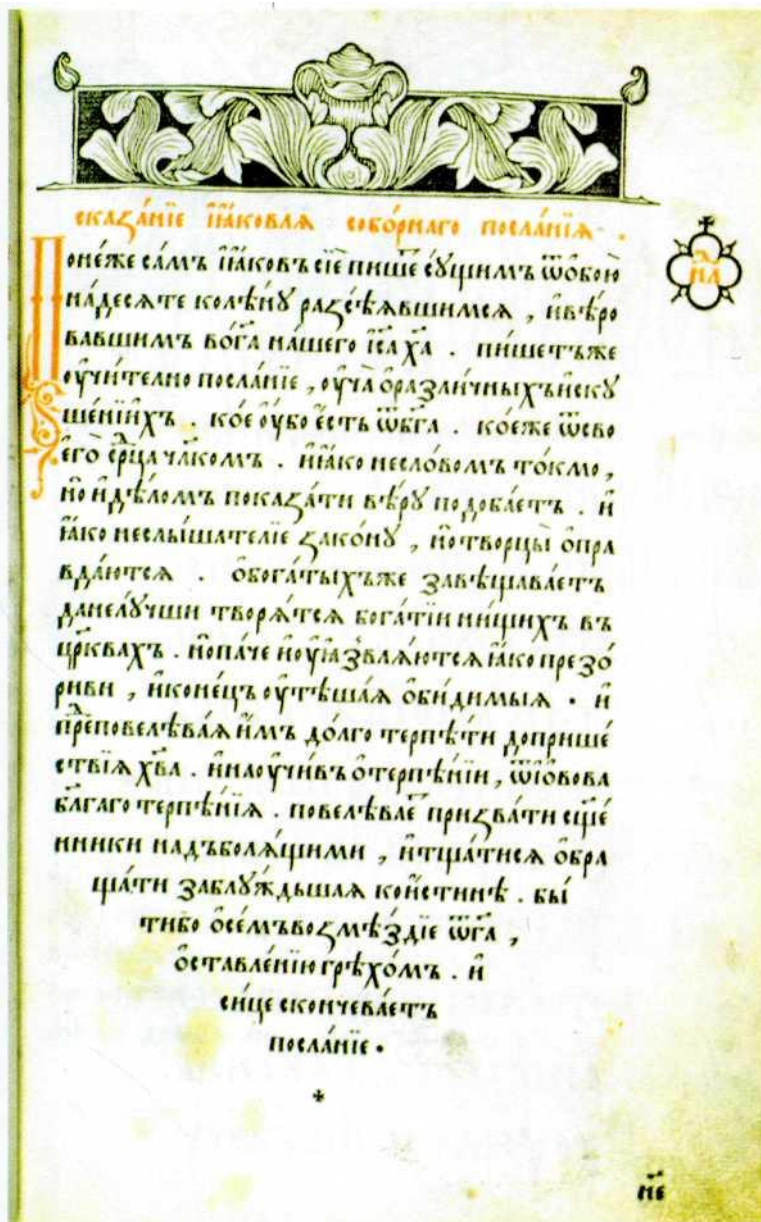 сказа́нїе і҆а́ковлѧ собо́рнаго посла́нїѧ .
Поне́же са́мъ і҆а́ковъ сїе пи́шеⷮ су́щимъ ѿѻ҆бою̀
на́десѧте колѣ́ну разсѣ́ѧвшимсѧ , и҆вѣ́ро
вавшимъ в̾гоⷭ҇а на́шего і҆с҃а х҃а . пи́шетъже
ѹ҆чи́телно посла́нїе , ѹ҆ча̀ ѻ҆разли́чныхъ и҆ску
ше́нїихъ . ко́е ѹ҆́бо є҆́сть ѿбг҃а . ко́еже ѿсво
его̀ срⷣ҇ца чл҃комъ . и҆і҆а́ко несло́вомъ то́кмо ,
но̀ и҆дѣ́ломъ показа́ти вѣ́рꙋ подоба́етъ . и҆
і҆а́ко неслы́шателїе зако́нꙋ , но̀творцы̀ ѻ҆пра
вда́ютсѧ . ѻ҆бога́тыхъже завѣщава́етъ
данела́ꙋчши творѧ́тсѧ бога́тїи ни́щихъ въ
цр҃квахъ . но̀па́че и҆ѹ҆ꙗзвлѧ́ютсѧ і҆а́ко презо́
риви , и҆коне́цъ ѹ҆тѣша́ѧ ѻ҆би́димыѧ . и҆
преⷣ҇повелѣва́ѧ и҆́мъ до́лго терпѣ́ти доприше́
ствїѧ хв҃а . и҆наѹ҆чи́въ ѻ҆терпѣ́нїи , ѿі҆о́вова
бл҃гаго терпѣ́нїѧ . повелѣва́еⷮ призва́ти сщ҃е́
нники надъболѧ́щими , и҆тща́тисѧ ѻ҆бра
ща́ти заблꙋ́ждьшаѧ кои҆́стинѣ . бы́
тибо ѻ҆се́мъ возмѣ́здїе ѿбг҃а ,
ѻ҆ставле́нїю грѣхо́мъ . и҆
си́це сконче́ваетъ
посла́нїе .
н҃е